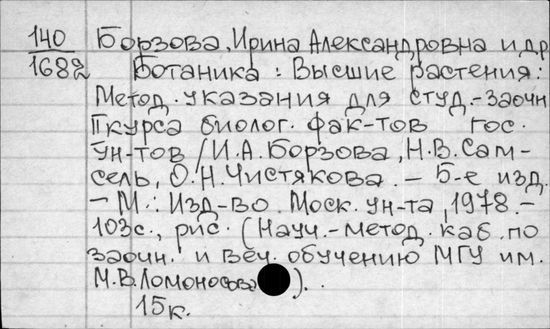 140 Борзова, Ирина Александровна и др
1682 Ботаника: Высшие растения:
Метод. указания для студ.-заочн
I курса биолог. фак-тов гос.
ун-тов / И.А. Борзова, Н.В. Сам-
сель, О.Н. Чистякова. – 5-е изд.
– М.: Изд-во Моск. ун-та, 1978. –
103с., рис. (Науч.-метод. каб. по
заочн. и веч. обучению МГУ им.
М.В. Ломоносова).
15к.